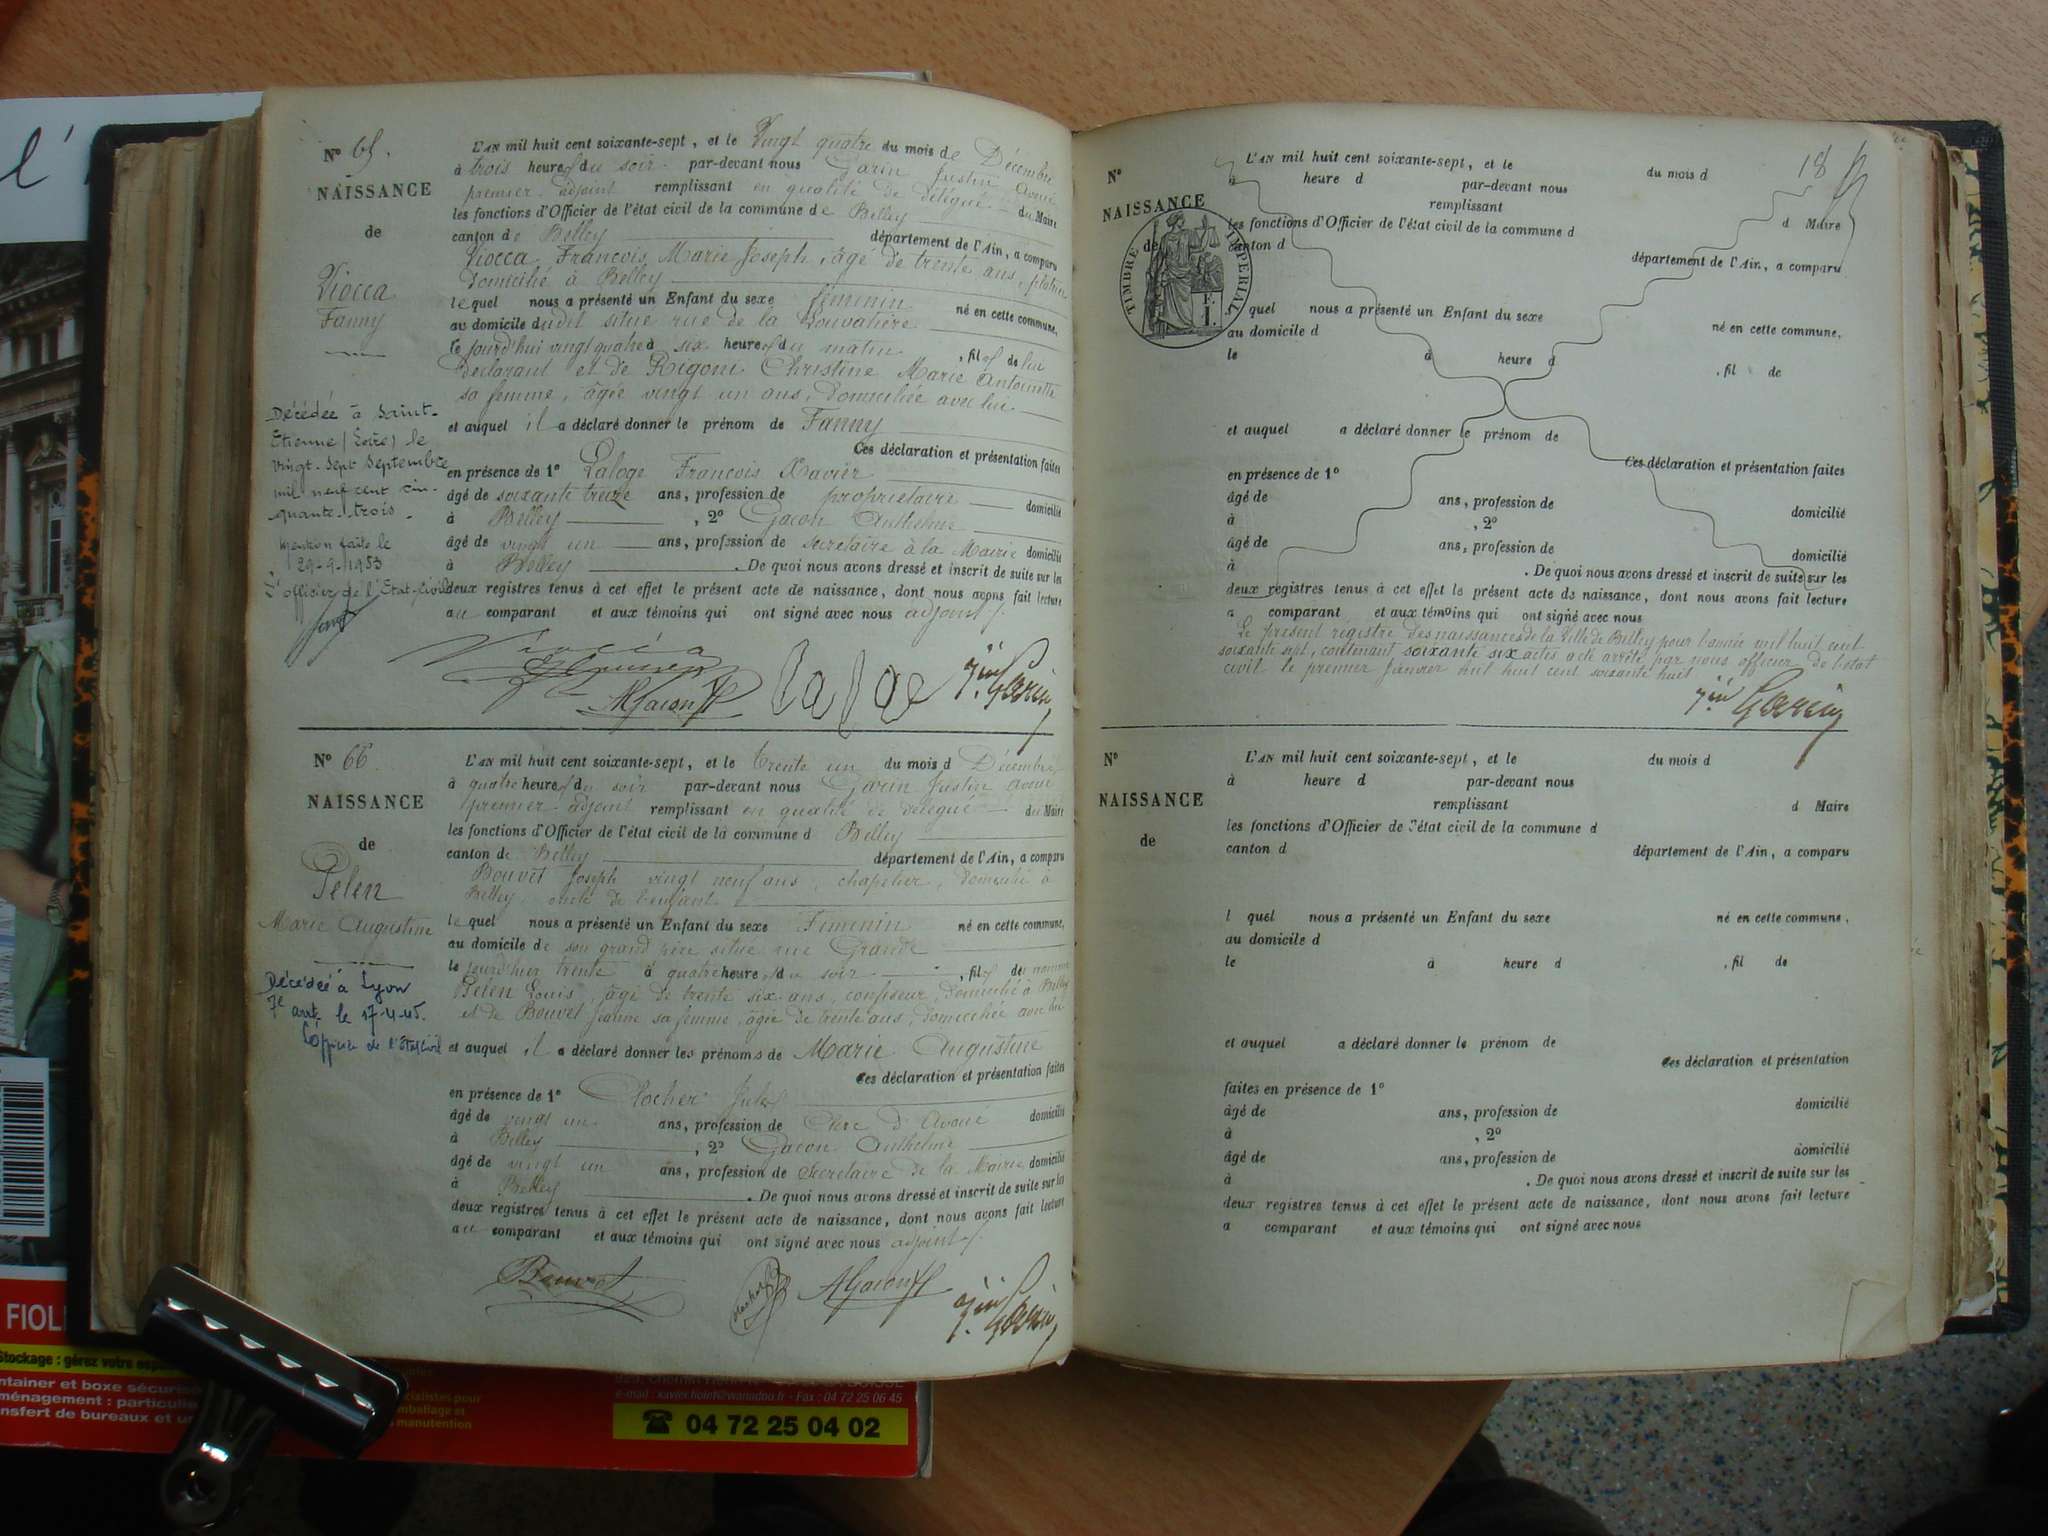 N° 65.
NAISSANCE
de
Viocca
Fanny
Décédée à Saint-
Etienne (Loire) le
vingt-sept septembre
mil neuf cent cin-
quante-trois.
Mention faite le
29-9-1953
L'officier de l'Etat-Civil
L'AN mil huit cent soixante-sept, et le Vingt quatre du mois de Décembre
à trois heures du soir par-devant nous Garin Justin Avoué
premier adjoint remplissant en qualité de délégué du Maire
les fonctions d'Officier de l'état civil de la commune de Belley
canton de Belley département de l'Ain, a comparu
Viocca, François, Marie Joseph, âgé de trente ans, plâtrier
domicilié à Belley
lequel nous a présenté un Enfant du sexe féminin né en cette commune,
au domicile dudit situé rue de la
le jourd'hui vingt quatre à six heures du matin, fille de lui
déclarant et de Rigoni Christine Marie Antoinette
sa femme, âgée vingt un ans, domiciliée avec lui
et auquel il a déclaré donner le prénom de Fanny
Ces déclaration et présentation faites
en présence de 1° Laloge François Xavier
âgé de soixante treize ans, profession de propriétaire domicilié
à Belley, 2° Gacon Anthelme
âgé de vingt un ans, profession de secrétaire à la Mairie domicilié
à Belley. De quoi nous avons dressé et inscrit de suite sur les
deux registres tenus à cet effet le présent acte de naissance, dont nous avons fait lecture
au comparant et aux témoins qui ont signé avec nous adjoint
Viocca
AGacon laloge Jin Garin
N° 66
NAISSANCE
de
Pelen
Marie Augustine
Décédée à Lyon
7e arrt le 17-4-45.
L'officier de l'Etat Civil
L'AN mil huit cent soixante-sept, et le trente un du mois d Décembre
à quatre heures du soir par-devant nous Garin Justin avoué
premier adjoint remplissant en qualité de délégué du Maire
les fonctions d'Officier de l'état civil de la commune d Belley
canton de Belley département de l'Ain, a comparu
Bouvet Joseph vingt neuf ans, chapelier, domicilié à
Belley, oncle de l'enfant
lequel nous a présenté un Enfant du sexe Féminin né en cette commune,
au domicile de son grand père situé rue Grande
le jourd'hier trente à quatre heures du soir, fille de nommé
Pelen Louis, âgé de trente six ans, confiseur, domicilié à Belley
et de Bouvet Jeanne sa femme, âgée de trente ans, domiciliée avec lui
et auquel il a déclaré donner les prénoms de Marie Augustine
Ces déclaration et présentation faites
en présence de 1° Jules
âgé de vingt un ans, profession de Clerc d'Avoué domicilié
à Belley, 2° Gacon Anthelme
âgé de vingt un ans, profession de Secrétaire de la Mairie domicilié
à Belley. De quoi nous avons dressé et inscrit de suite sur les
deux registres tenus à cet effet le présent acte de naissance, dont nous avons fait lecture
au comparant et aux témoins qui ont signé avec nous adjoint
Bouvet AGacon Jin Garin
18
N°
NAISSANCE
de
TIMBRE IMPERIAL
E.
I.
L'AN mil huit cent soixante-sept, et le du mois d
à heure d par-devant nous
remplissant d Maire
les fonctions d'Officier de l'état civil de la commune d
canton d département de l'Ain, a comparu
l quel nous a présenté un Enfant du sexe né en cette commune,
au domicile d
le à heure d, fil de
et auquel a déclaré donner le prénom de
Ces déclaration et présentation faites
en présence de 1°
âgé de ans, profession de domicilié
à , 2°
âgé de ans, profession de domicilié
à . De quoi nous avons dressé et inscrit de suite sur les
deux registres tenus à cet effet le présent acte de naissance, dont nous avons fait lecture
a comparant et aux témoins qui ont signé avec nous
Le présent registre des naissances de la Ville de Belley pour l'année mil huit cent
soixante sept, contenant soixante six actes, a été arrêté par nous officier de l'état
civil le premier Janvier mil huit cent soixante huit
Jin Garin
N°
NAISSANCE
de
L'AN mil huit cent soixante-sept, et le du mois d
à heure d par-devant nous
remplissant d Maire
les fonctions d'Officier de l'état civil de la commune d
canton d département de l'Ain, a comparu
l quel nous a présenté un Enfant du sexe né en cette commune,
au domicile d
le à heure d, fil de
et auquel a déclaré donner le prénom de
Ces déclaration et présentation
faites en présence de 1°
âgé de ans, profession de domicilié
à , 2°
âgé de ans, profession de domicilié
à . De quoi nous avons dressé et inscrit de suite sur les
deux registres tenus à cet effet le présent acte de naissance, dont nous avons fait lecture
a comparant et aux témoins qui ont signé avec nous
l'
FIOL
Stockage : gérez votre
ntainer et boxe sécuris
ménagement : particulie
nsfert de bureaux et
alistes pour
mballage et
manutention
e-mail : xavier.fiolet@wanadoo.fr - Fax : 04 72 25 06 45
☎ 04 72 25 04 02